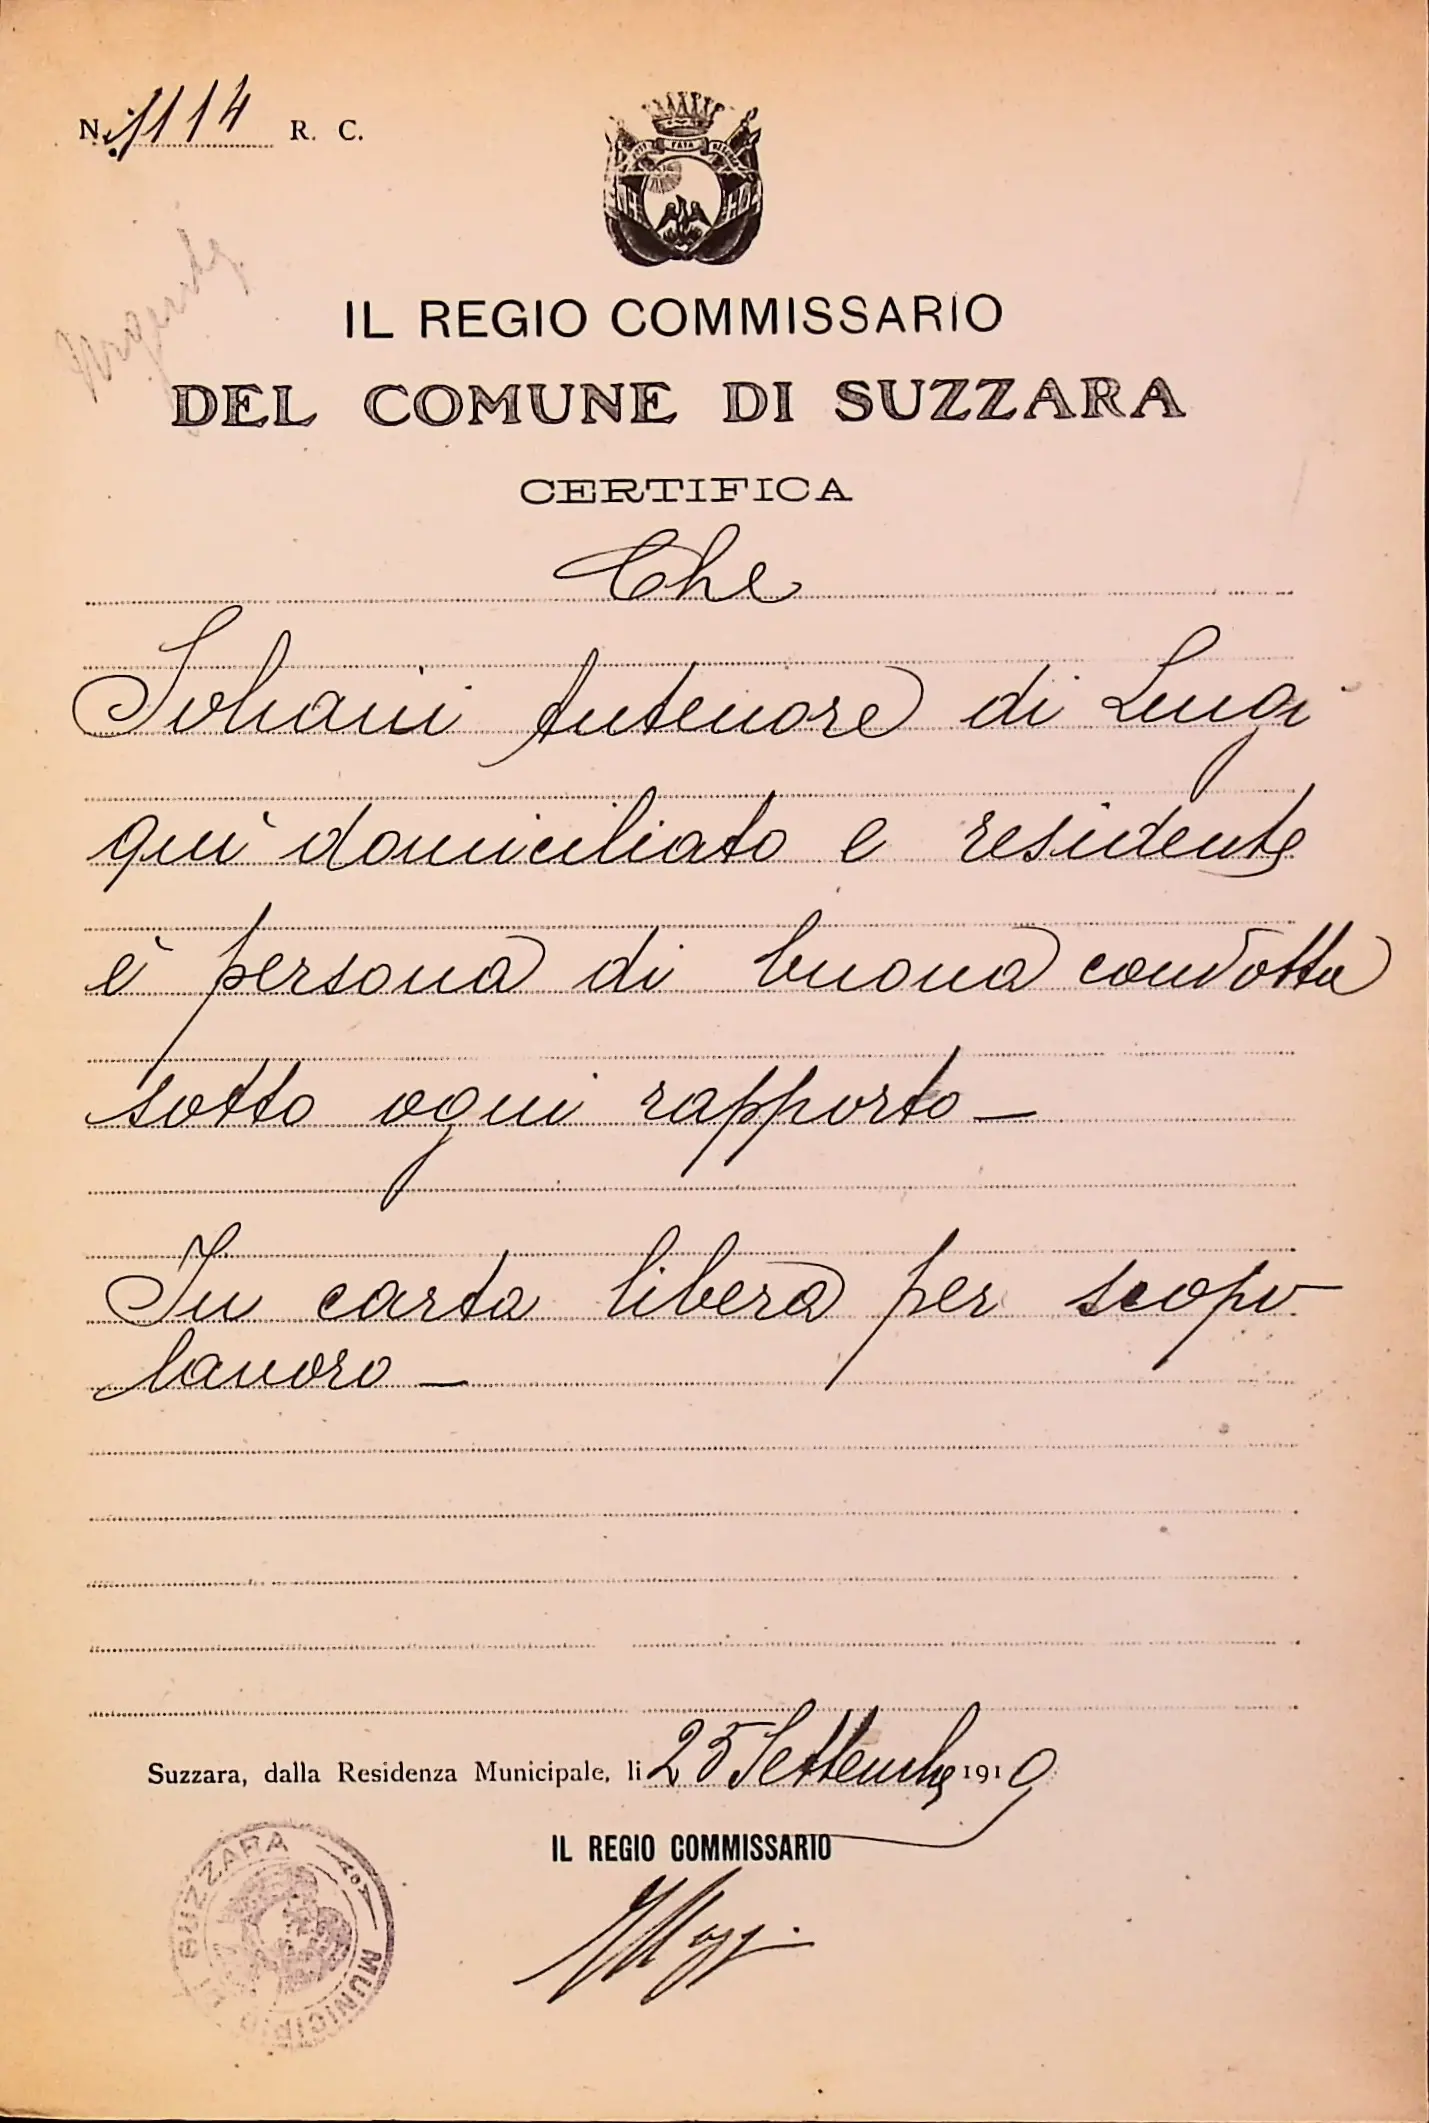 N. 1114 R. C.
FATA
Urgente
IL REGIO COMMISSARIO
DEL COMUNE DI SUZZARA
CERTIFICA
Che
Soliani Antenore di Luigi
qui domiciliato e residente
è persona di buona condotta
sotto ogni rapporto —
In carta libera per scopo
lavoro —
Suzzara, dalla Residenza Municipale, li 25 Settembre 1919
IL REGIO COMMISSARIO
MUNICIPIO DI SUZZARA